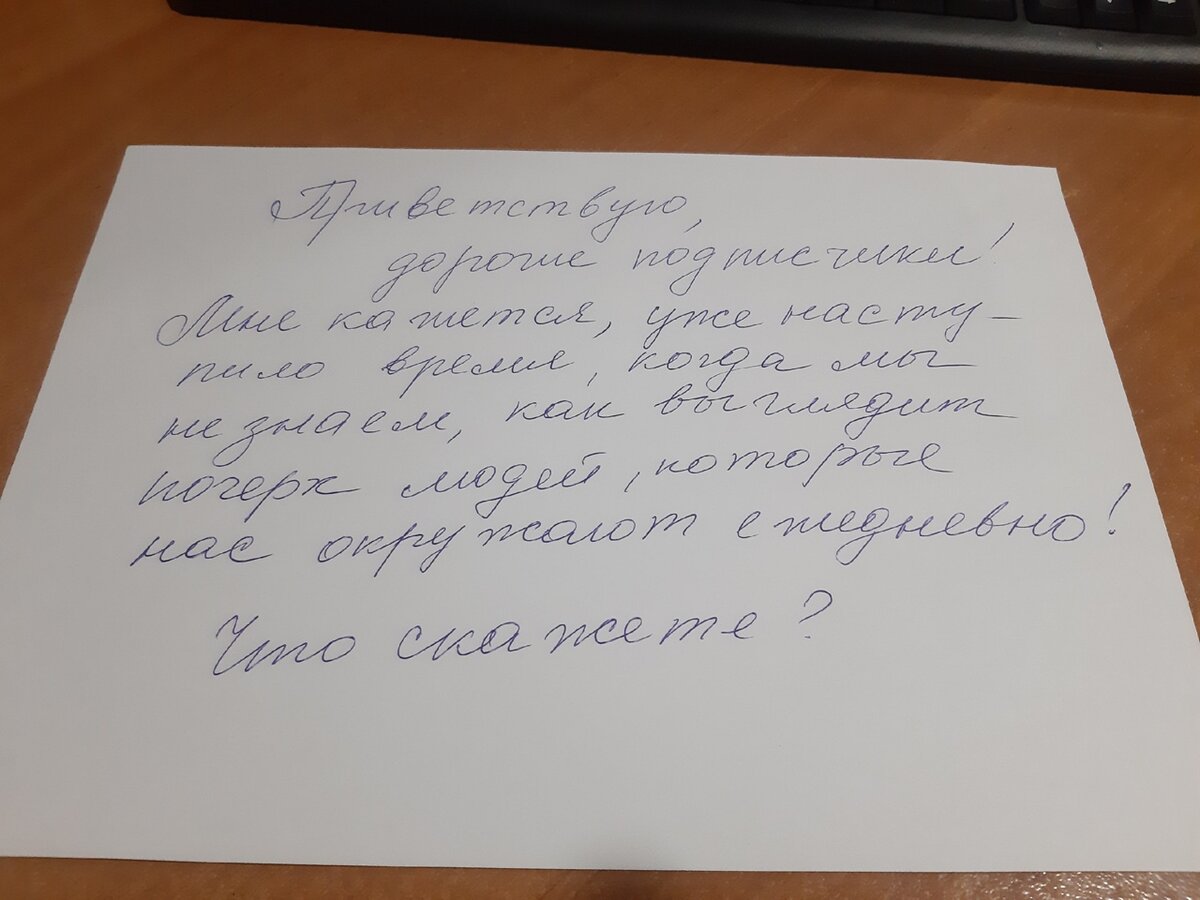 Приветствую,
дорогие подписчики!
Мне кажется, уже насту-
пило время, когда мы
не знаем, как выглядит
почерк людей, которые
нас окружают ежедневно!
Что скажете?